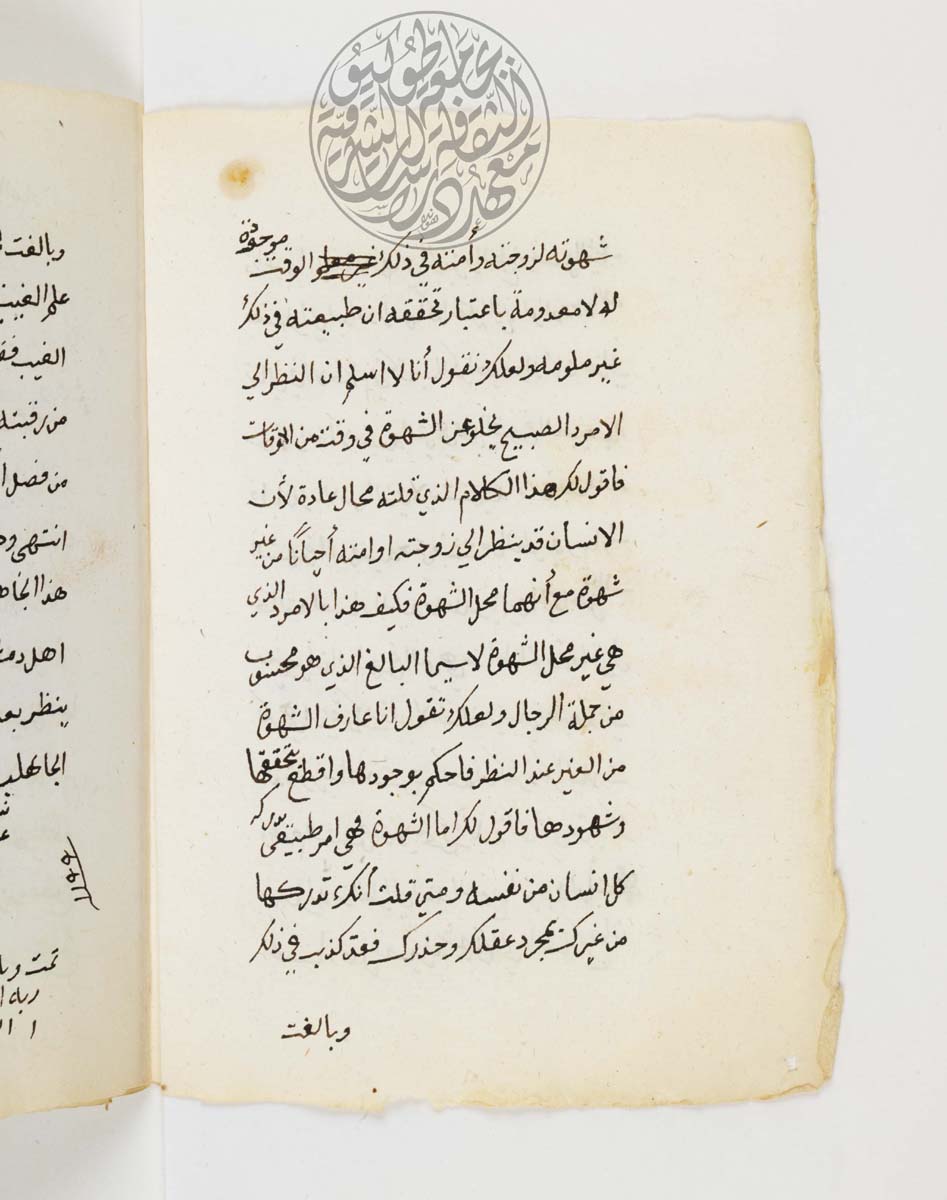 معهد دراسات الثقافة الشرقية بجامعة طوكيو
شهوته لزوجته وأمته في ذلك الوقت موجودة
له لا معدومة باعتبار تحققه ان طبيعته في ذلك
غير ملومه ولعلك تقول أنا لا اسلم ان النظر الي
الامرد الصبيح يخلو عن الشهوة في وقت من الاوقات
فاقول لك هذا الكلام الذي قلته محال عادة لأن
الانسان قد ينظر الي زوجته او امته أحيانًا من غير
شهوة مع أنهما محل الشهوة فكيف هذا بالامرد الذي
هي غير محل الشهوة لاسيما البالغ الذي هو محسوب
من جملة الرجال ولعلك تقول انا عارف الشهوة
من الغير عند النظر فاحكم بوجودها واقطع بتحققها
وشهودها فاقول لك اما الشهوة فهي امر طبيقى يدركه
كل انسان من نفسه ومتي قلت أنك تدركها
من غيرك بمجرد عقلك وحذرك فقد كذب في ذلك
وبالغت
وبالغت
علم الغيب
الغيب فقد
من رقبته
من فضل
انتهى
هذا الجاهل
اهل دمشق
ينظر بعد
الجاهلين
تمت
ربه